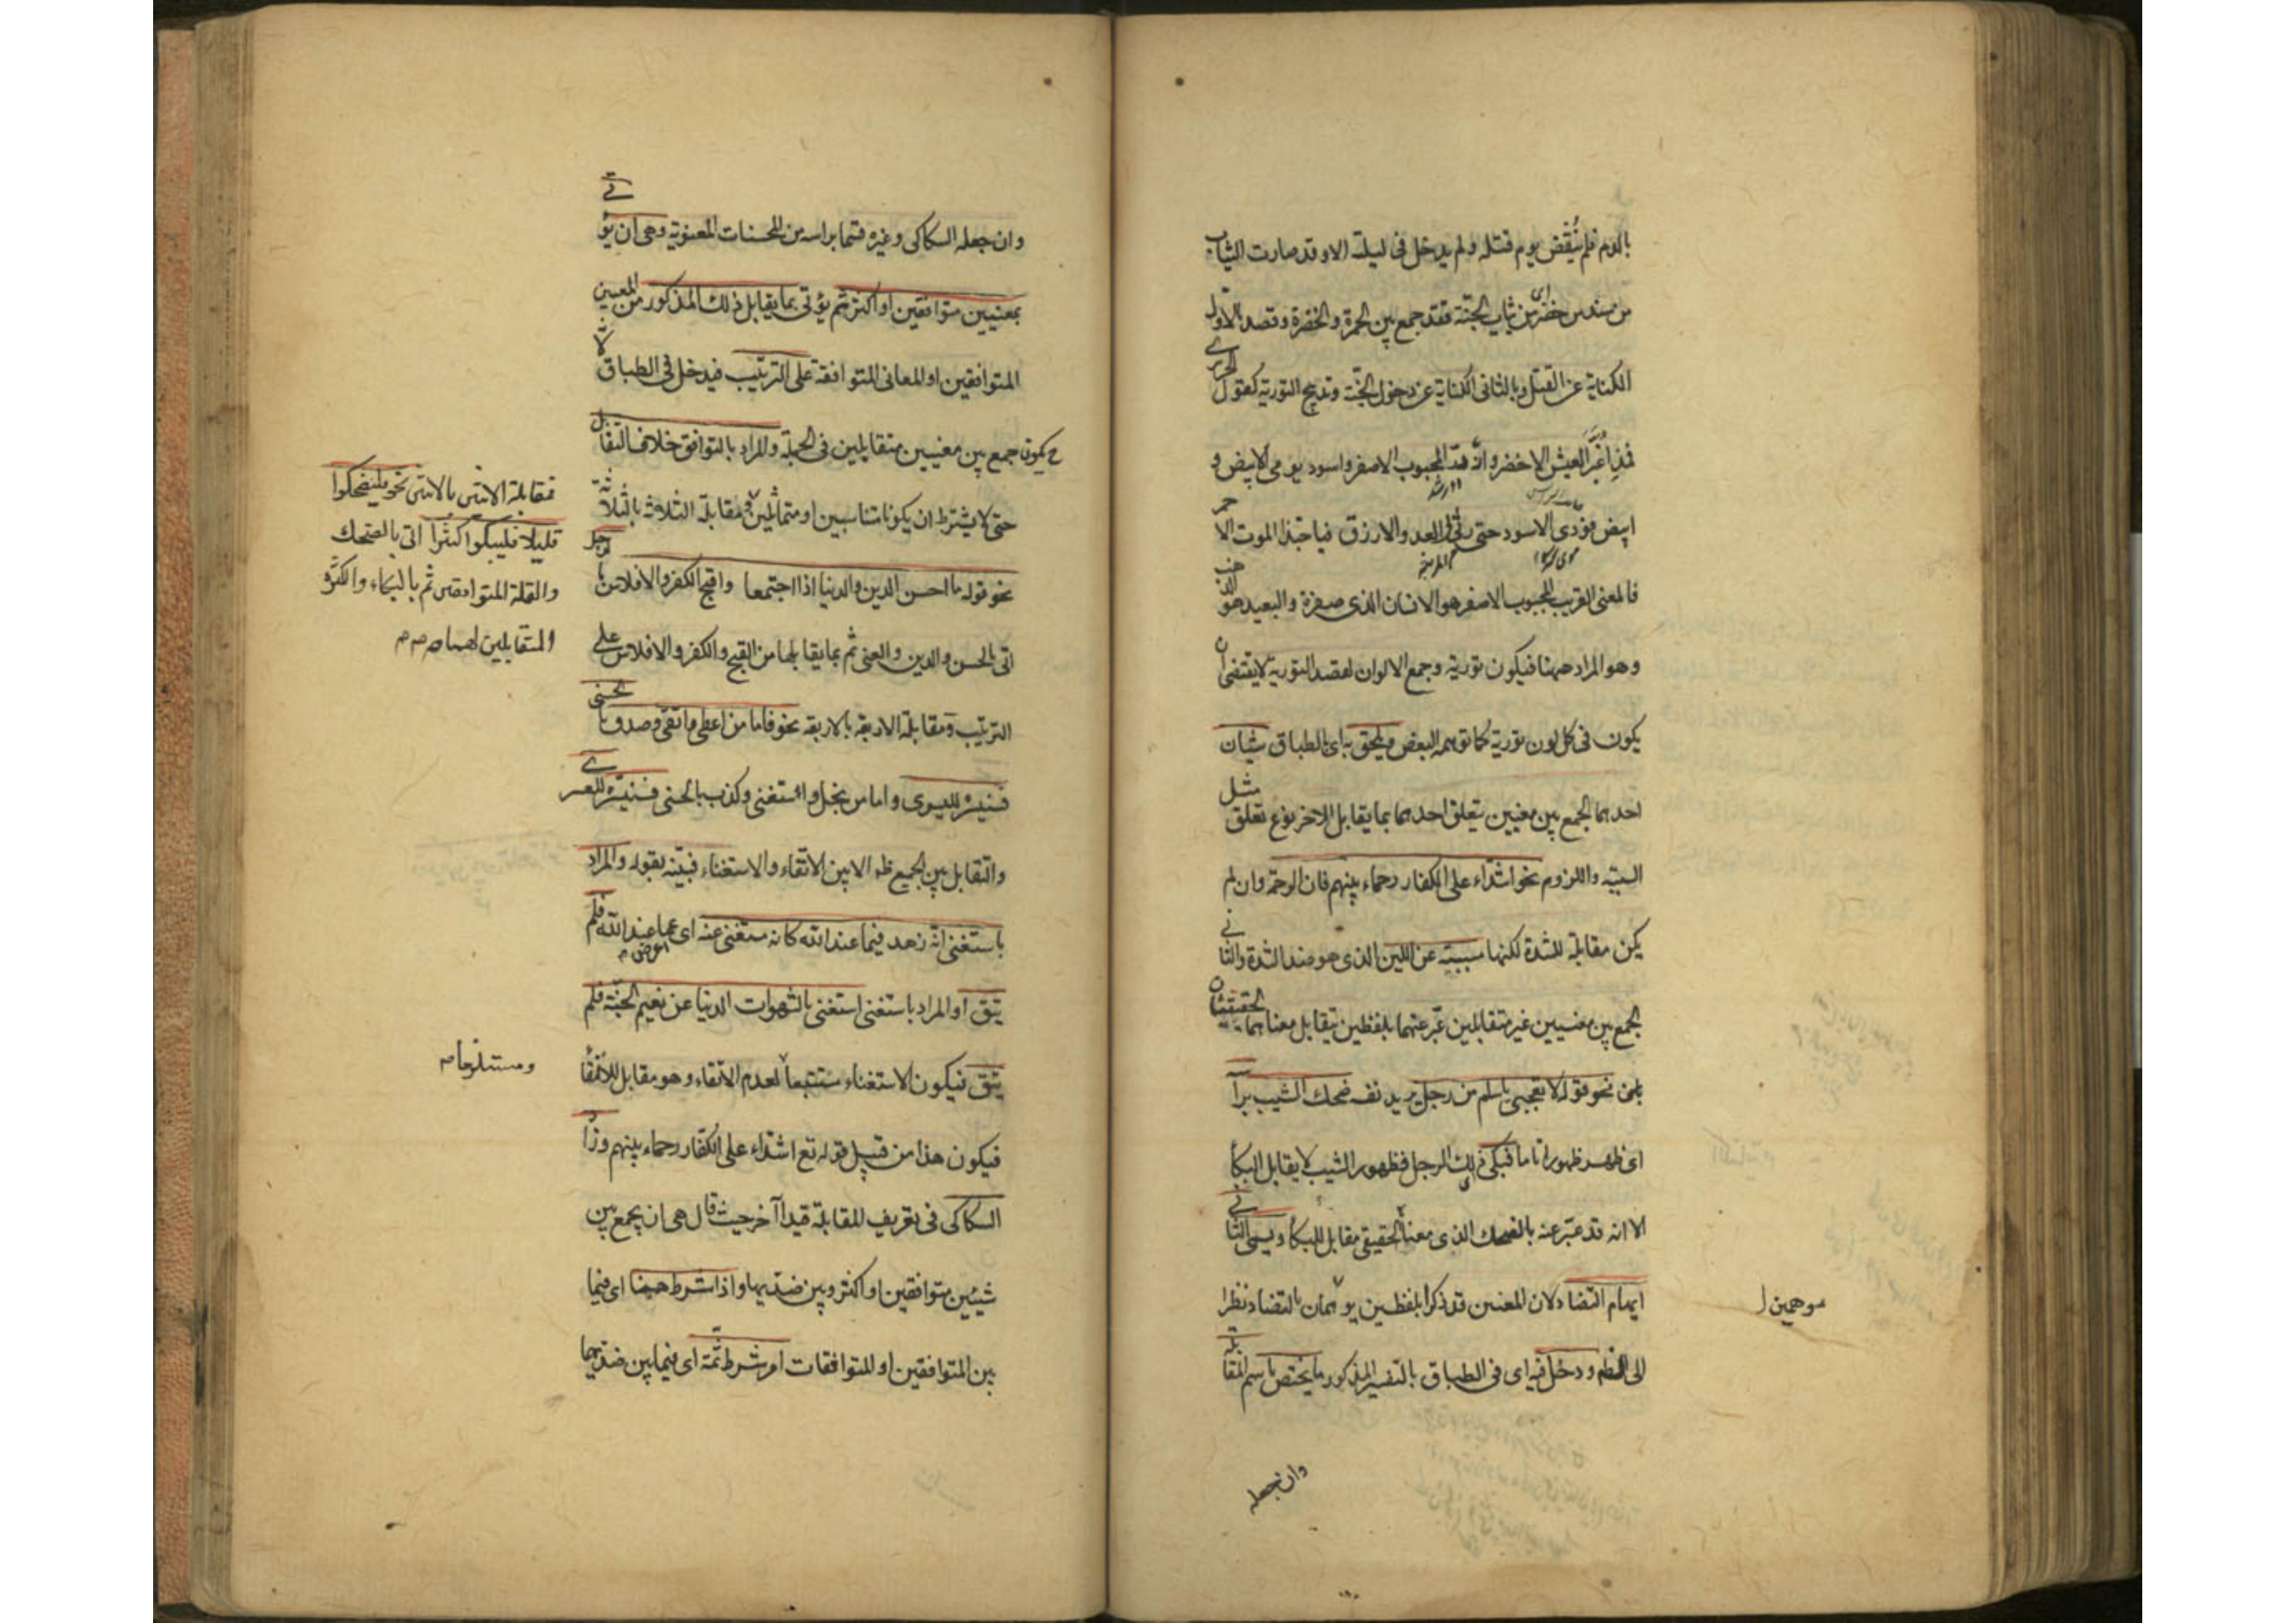 بالدم فلم ينقض يوم قتله ولم يدخل فى ليلته الا وقد صارت الثياب
من سندس خضر اى من ثياب الجنة فقد جمع بين الحمرة والخضرة وقصد بالاول
الكناية عن القتل وبالثانى الكناية عن دخول الجنة وتدبيج التورية كقول الحريرى
فمذ اغبر العيش الاخضر وازور المحبوب الاصفر واسود يومى الابيض و
ابيض فودى الاسود حتى رثى لى العدو الازرق فيا حبذا الموت الاحمر
فالمعنى القريب للمحبوب الاصفر هو الانسان الذى صفرة والبعيد هو الذهب
وهو المراد ههنا فيكون تورية وجمع الالوان لقصد التورية لا يقتضى ان
يكون فى كل لون تورية كما توهمه البعض ويلحق به اى بالطباق شيئان
احدهما الجمع بين معنيين يتعلق احدهما بما يقابل الاخر نوع تعلق مثل
السببية واللزوم نحو اشداء على الكفار رحماء بينهم فان الرحمة وان لم
يكن مقابلة للشدة لكنها مسببة عن اللين الذى هو ضد الشدة والثانى
الجمع بين معنيين غير متقابلين عبر عنهما بلفظين يتقابل معناهما الحقيقيان
نحو قوله لا تعجبى يا سلم من رجل يريد نفسه ضحك المشيب برأسه
اى ظهر ظهورا تاما فبكى ذلك الرجل فظهور الشيب لا يقابل البكا
الا انه قد عبر عنه بالضحك الذى معناه الحقيقى مقابل للبكا ويسمى الثانى
ايهام التضاد لان المعنيين قد ذكرا بلفظين يوهمان بالتضاد نظرا
الى الظ ودخل فيه اى فى الطباق بالتفسير المذكور ما يختص باسم المقابلة
موهمين
وان جعله
وان جعله السكاكى وغيره قسما براسه من المحسنات المعنوية وهى ان يؤتى
بمعنيين متوافقين او اكثر ثم يؤتى بما يقابل ذلك المذكور من المعنيين
المتوافقين او المعانى المتوافقة على الترتيب فيدخل فى الطباق لانه
ح يكون جمع بين معنيين متقابلين فى الجملة والمراد بالتوافق خلاف التقابل
حتى لا يشترط ان يكونا متناسبين او متماثلين ومقابلة الثلاثة بالثلاثة
نحو قوله ما احسن الدين والدنيا اذا اجتمعا واقبح الكفر والافلاس بالرجل
اتى بالحسن والدين والغنى ثم بما يقابلها من القبح والكفر والافلاس على
الترتيب ومقابلة الاربعة بالاربعة نحو فاما من اعطى واتقى وصدق بالحسنى
فسنيسره لليسرى واما من بخل واستغنى وكذب بالحسنى فسنيسره للعسرى
والتقابل بين الجميع ظ الا بين الاتقاء والاستغناء فبينه بقوله والمراد
باستغنى انه زهد فيما عند الله كانه مستغنى عنه اى عما عند الله فلم
يتق او المراد باستغنى استغنى بالشهوات الدنيا عن نعيم الجنة فلم
يتق فيكون الاستغناء مستتبعا لعدم الاتقاء وهو مقابل للاتقا
فيكون هذا من قبيل قوله تع اشداء على الكفار رحماء بينهم وزاد
السكاكى فى تعريف المقابلة قيدا آخر حيث قال هى ان يجمع بين
شيئين متوافقين او اكثر وبين ضديهما واذا شرط ههنا اى فيما
بين المتوافقين او المتوافقات امر شرط ثمة اى فيما بين ضديهما
فمقابلة الاثنين بالاثنين نحو فليضحكوا
قليلا وليبكوا كثيرا اتى بالضحك
والقلة المتوافقين ثم بالبكاء والكثرة
المتقابلين لهما
ومستلزما